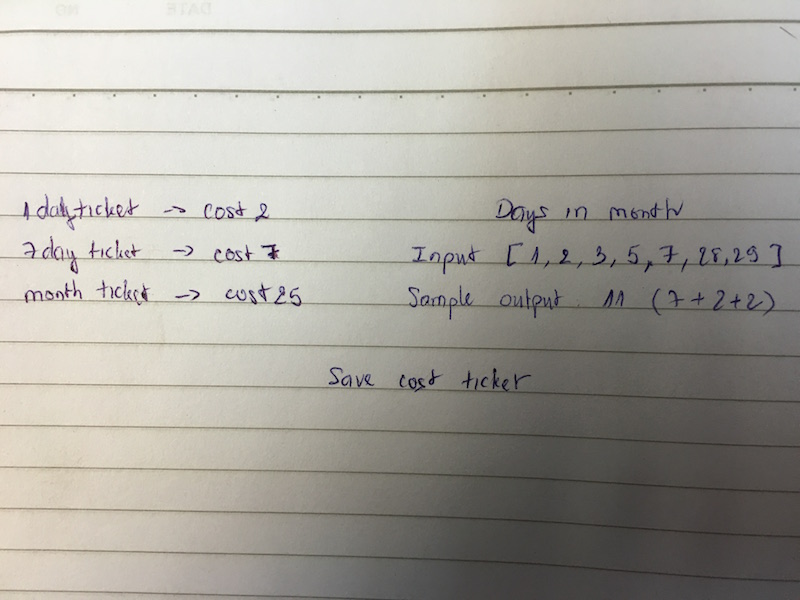 DATE NO
1 day ticket -> cost 2
7 day ticket -> cost 7
month ticket -> cost 25
Days in month
Input [1, 2, 3, 5, 7, 28, 29]
Sample output: 11 (7+2+2)
Save cost ticket